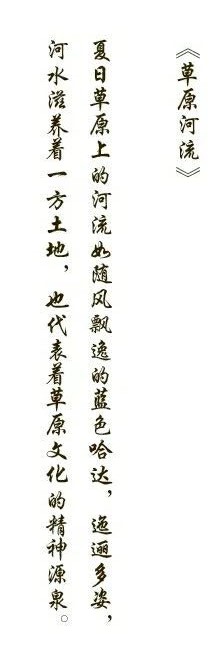 《草原河流》
夏日草原上的河流如随风飘逸的蓝色哈达，迤逦多姿，
河水滋养着一方土地，也代表着草原文化的精神源泉。